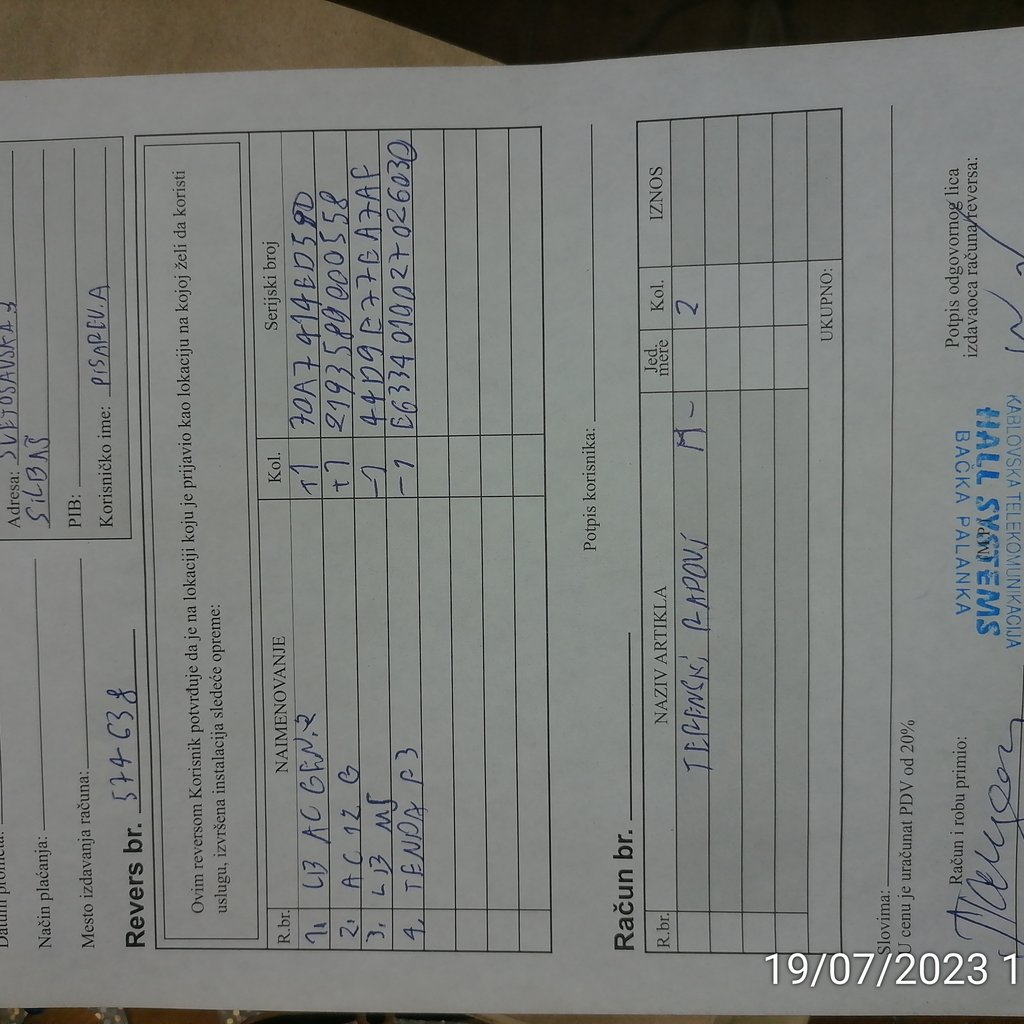 Adresa: SVETOSAVSKA 3
SILBAŠ
PIB:
Korisničko ime: PISAREV.A
Datum prometa:
Način plaćanja:
Mesto izdavanja računa:
Revers br. 574638
Ovim reversom Korisnik potvrđuje da je na lokaciji koju je prijavio kao lokaciju na kojoj želi da koristi
uslugu, izvršena instalacija sledeće opreme:
R.br. NAIMENOVANJE Kol. Serijski broj
1. LB AC GEN.2 +1 70A7414ED59D
2. AC 12 G +1 2193589000558
3. LB M5 -1 44D9E777EA7AF
4. TENDA F3 -1 E6334010027026030
Potpis korisnika:
Račun br.
R.br. NAZIV ARTIKLA Jed. mere Kol. IZNOS
TERENSKI RADOVI M- 2
UKUPNO:
Slovima:
U cenu je uračunat PDV od 20%
Račun i robu primio:
Potpis odgovornog lica
izdavaoca računa/reversa:
KABLOVSKA TELEKOMUNIKACIJA
HALL SYSTEMS
BAČKA PALANKA
19/07/2023 1